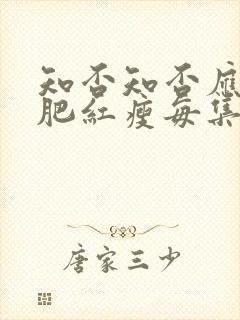 知否知否應
肥紅瘦每集
唐家三少